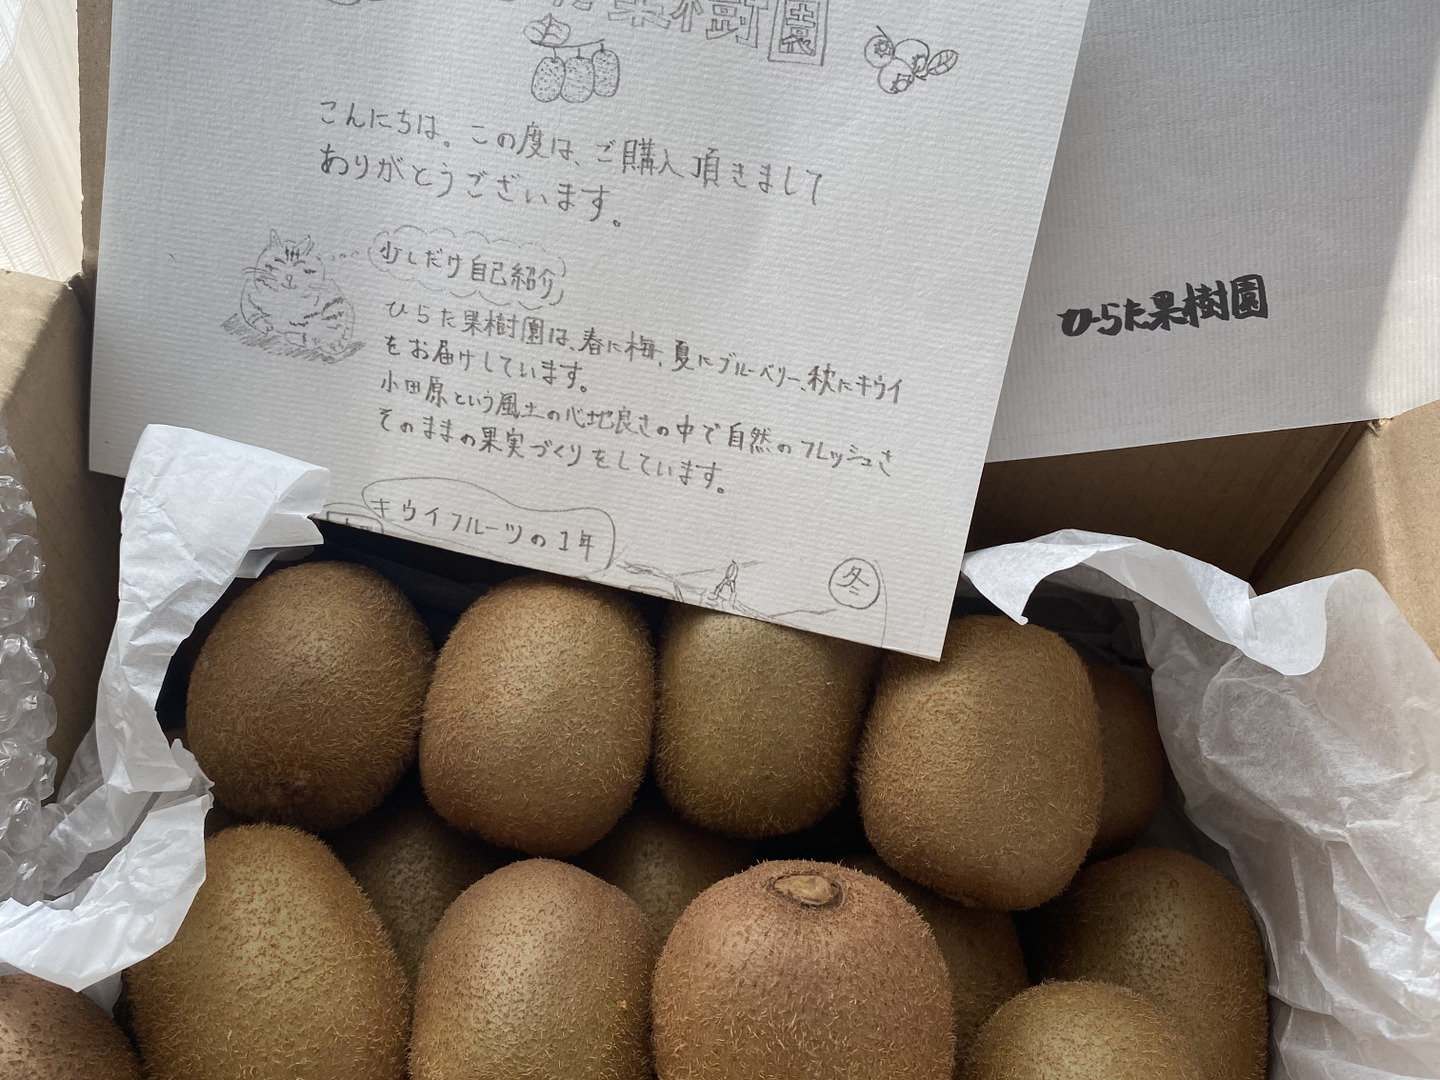 果樹園
こんにちは。この度は、ご購入頂きまして
ありがとうございます。
少しだけ自己紹介
ひらた果樹園は、春に梅、夏にブルーベリー、秋にキウイ
をお届けしています。
小田原という風土の心地良さの中で自然のフレッシュさ
そのままの果実づくりをしています。
キウイフルーツの1年
冬
ひらた果樹園